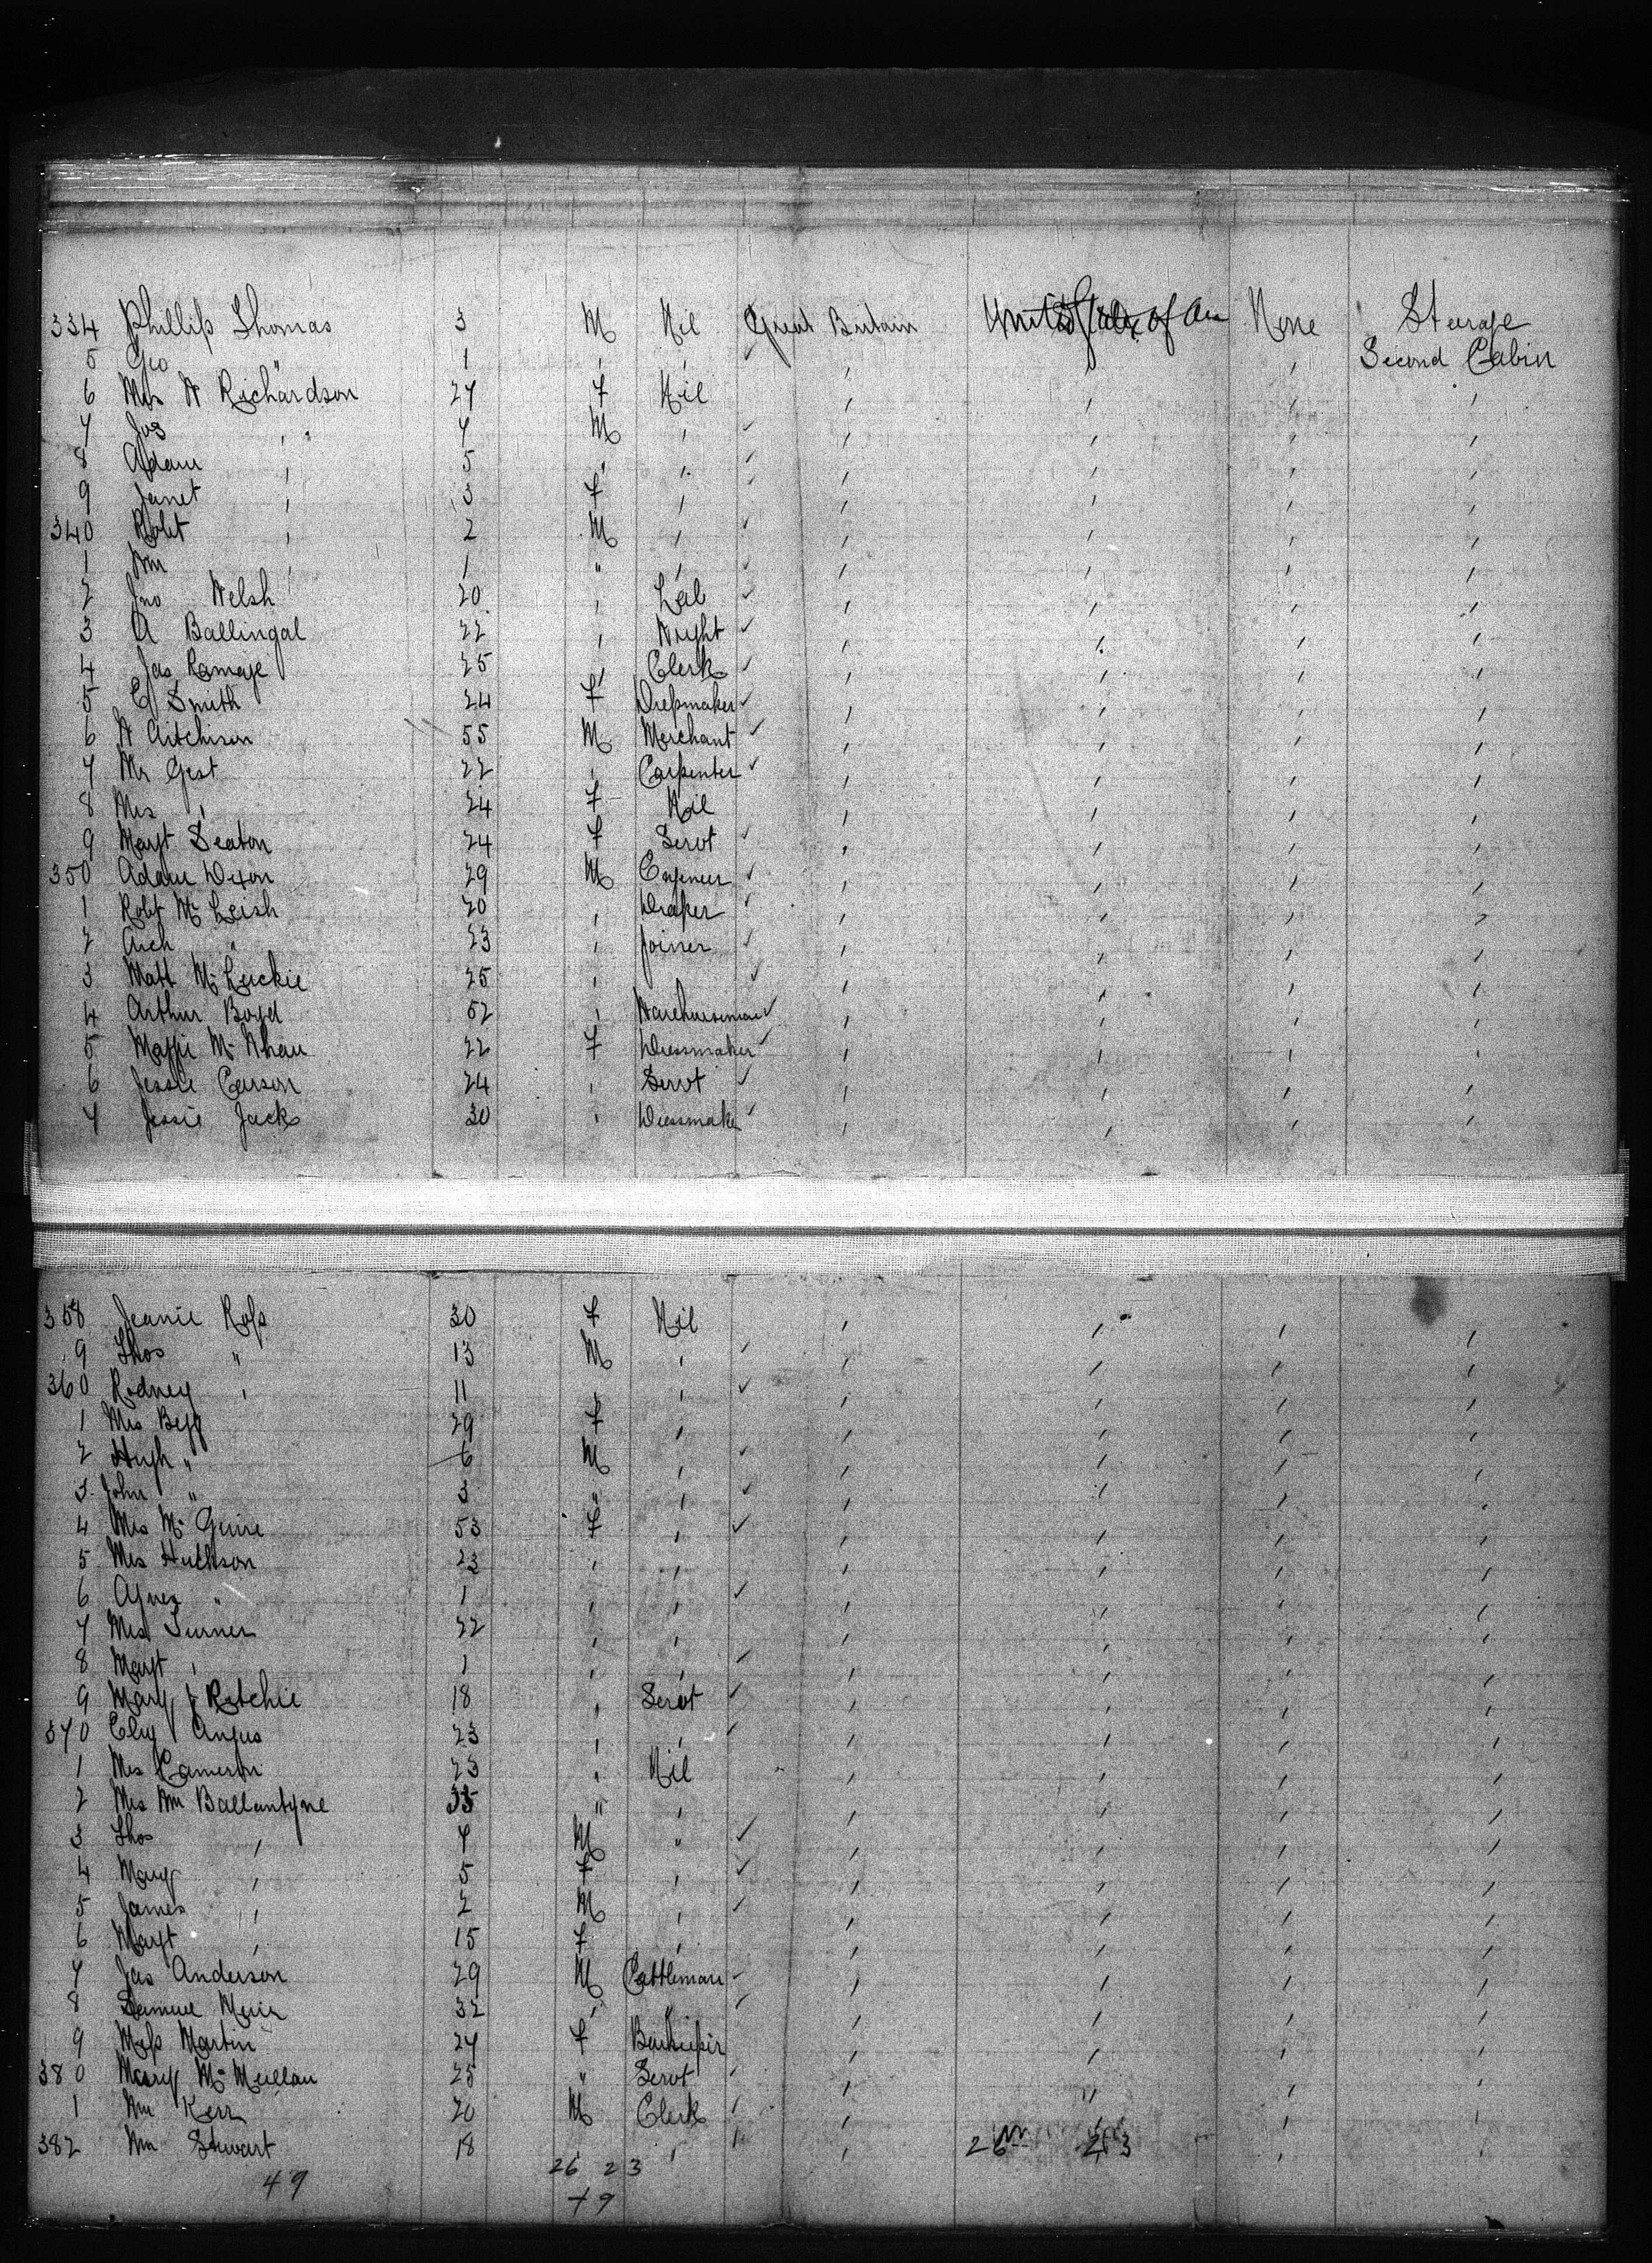 334 Phillip Thomas 3 M Nil Great Britain United States of Am None Steerage
5 Geo " 1 , , ✓ , , , Second Cabin
6 Mrs W Richardson 27 F Nil , , , ,
7 Jos , " 7 M , ✓ , , , ,
8 Adam , 5 , , ✓ , , , ,
9 Janet , 3 F , ✓ , , , ,
340 Robt , 2 M , ✓ , , , ,
1 Wm , 1 " , ✓ , , , ,
2 Jno Welsh 20 , Lab ✓ , , , ,
3 A Ballingal 22 , Wright ✓ , , , ,
4 Jas Ramage 25 , Clerk ✓ , , , ,
5 E Smith 24 F Dressmaker ✓ , , , ,
6 W Aitchison 55 M Merchant ✓ , , , ,
7 Mr Gest 22 , Carpenter ✓ , , , ,
8 Mrs , 24 F Nil , , , ,
9 Margt Seaton 24 F Servt ✓ , , , ,
350 Adam Dixon 29 M Engineer ✓ , , , ,
1 Robt McLeish 20 , Draper ✓ , , , ,
2 Arch " 23 , Joiner ✓ , , , ,
3 Matt McLuckie 25 , ✓ , , , ,
4 Arthur Boyd 52 , Warehouseman ✓ , , , ,
5 Maggie 22 F Dressmaker ✓ , , , ,
6 Jessie Carson 24 , Servt ✓ , , , ,
7 Jessie Jack 30 , Dressmaker ✓ , , , ,
358 Jeanie Ross 30 F Nil , , , ,
9 Thos " 13 M , ✓ , , , ,
360 Rodney , 11 , , ✓ , , , ,
1 Mrs Begg 29 F , , , , ,
2 Hugh " 6 M , ✓ , , , ,
3 John " 3 " , ✓ , , , ,
4 Mrs McGuire 53 F , ✓ , , , ,
5 Mrs Hutchson 23 , , , , , ,
6 Agnes " 1 , , ✓ , , , ,
7 Mrs Turner 22 , , , , , ,
8 Margt , 1 , , ✓ , , , ,
9 Mary J Ritchie 18 , Servt ✓ , , , ,
370 Angus 23 , , ✓ , , , ,
1 Mrs Cameron 23 , Nil , , , ,
2 Mrs Wm Ballantyne 35 " , , , , ,
3 Thos , 7 M " ✓ , , , ,
4 Mary , 5 F , ✓ , , , ,
5 James , 2 M , ✓ , , , ,
6 Margt , 15 F , , , , ,
7 Jas Anderson 29 M Cattleman ✓ , , , ,
8 Samuel Muir 32 , " ✓ , , , ,
9 Miss Martin 27 F Barkeeper , , , ,
380 Mary McMullan 25 " Servt ✓ , , , ,
1 Wm Kerr 20 M Clerk ✓ , , , ,
382 Wm Stewart 18 , , ✓ , 26 23 , ,
49 26 23
49